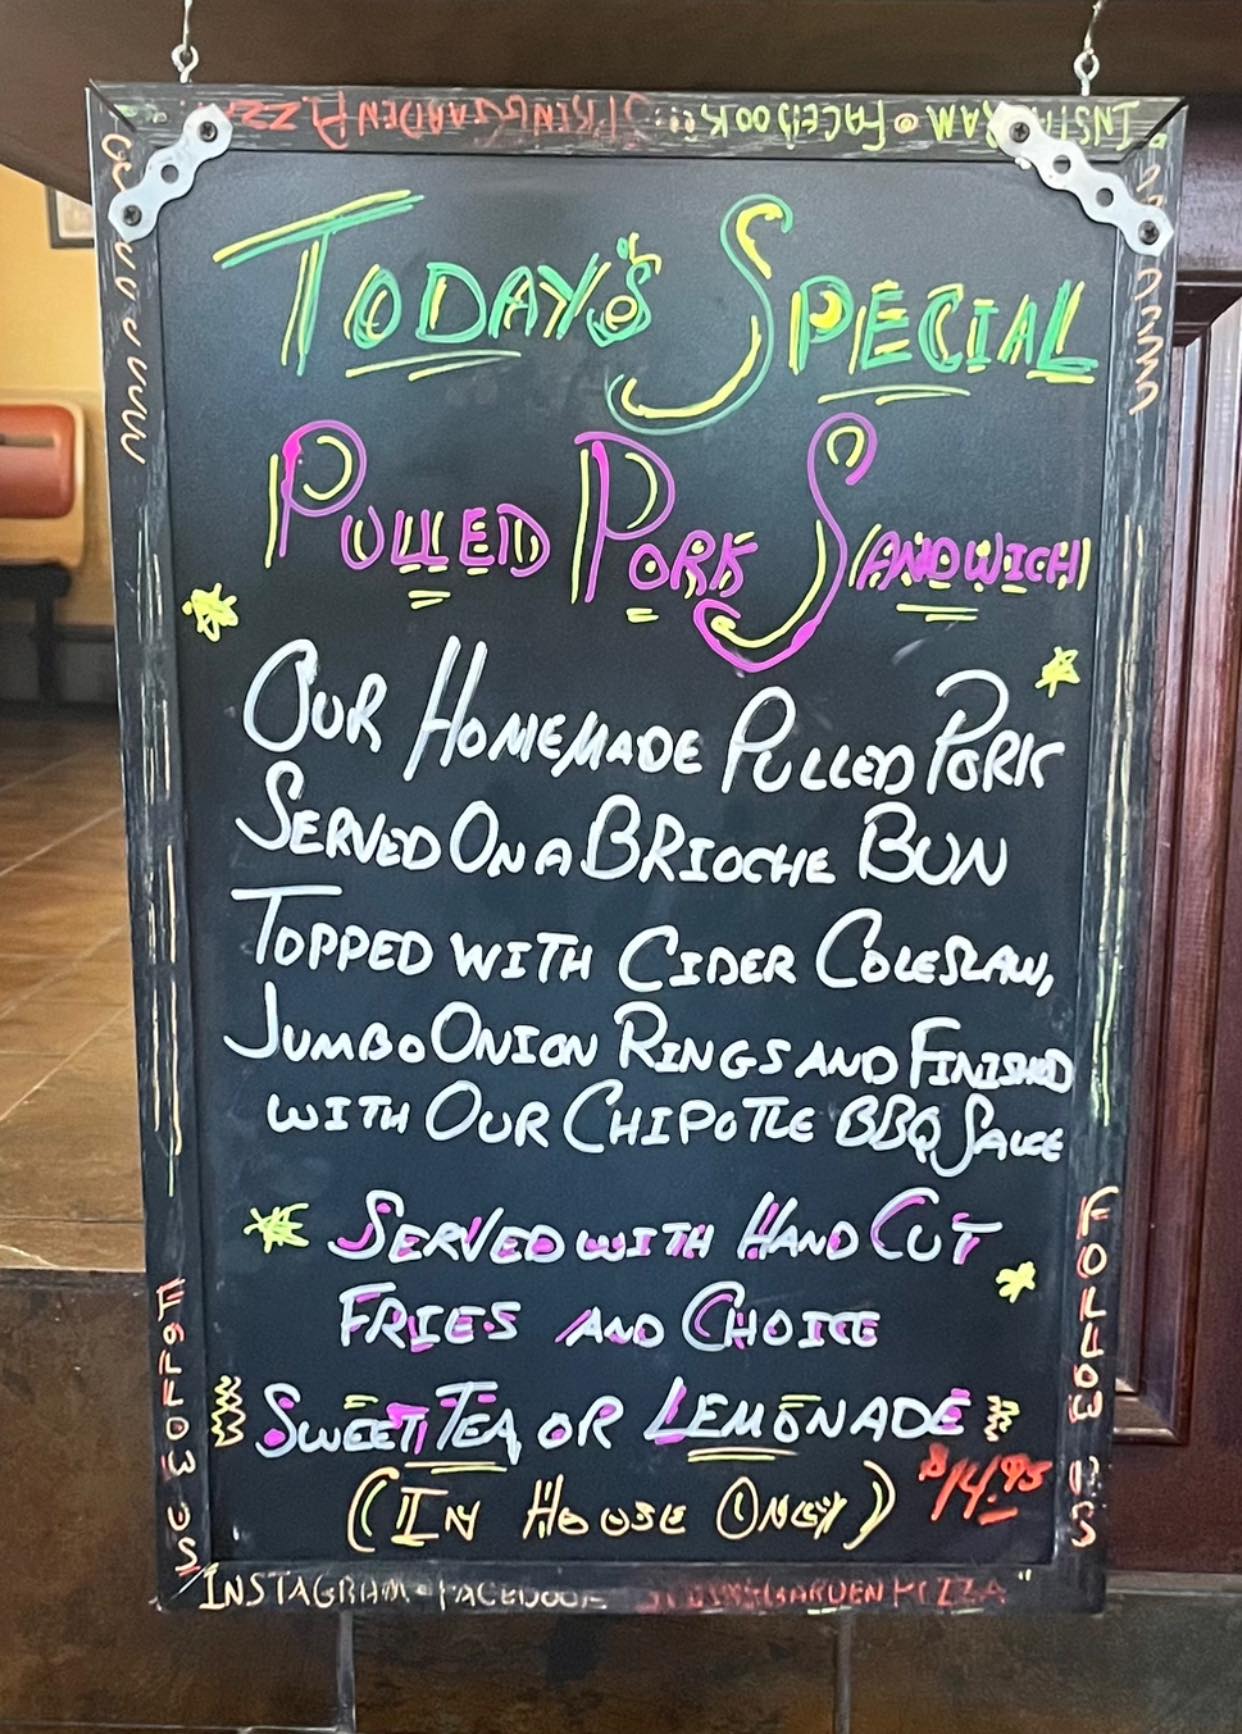 TODAY'S SPECIAL
PULLED PORK SANDWICH
OUR HOMEMADE PULLED PORK
SERVED ON A BRIOCHE BUN
TOPPED WITH CIDER COLESLAW,
JUMBO ONION RINGS AND FINISHED
WITH OUR CHIPOTLE BBQ SAUCE
SERVED WITH HAND CUT
FRIES AND CHOICE
SWEET TEA OR LEMONADE
(IN HOUSE ONLY) $14.95
FOLLOW US
FOLLOW US
INSTAGRAM - FACEBOOK GARDEN PIZZA"
INSTAGRAM FACEBOOK GARDEN PIZZA